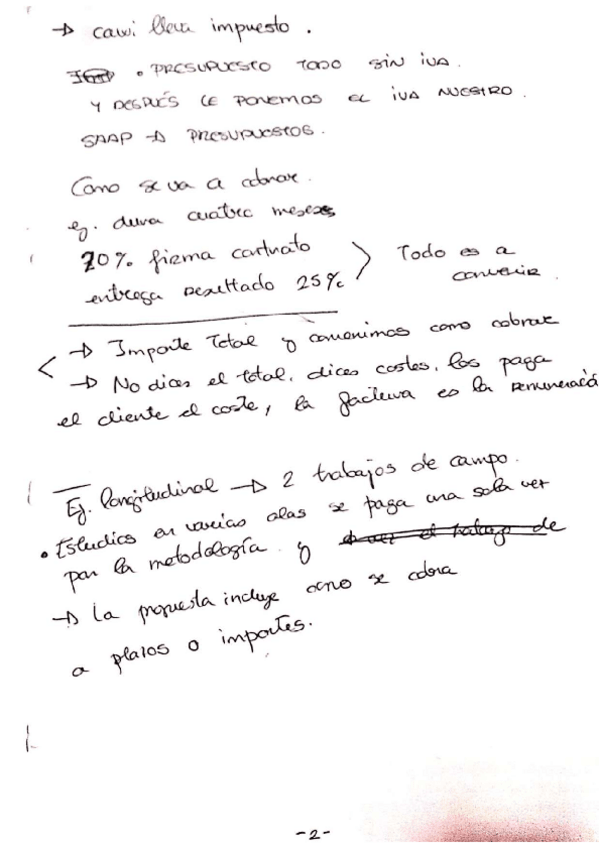 → cawi lleva impuesto.
• PRESUPUESTO TODO SIN IVA.
Y DESPUÉS LE PONEMOS EL IVA NUESTRO.
SAAP → PRESUPUESTOS.
Como se va a cobrar.
ej. dura cuatro meses
20% firma contrato
entrega resultado 25%
Todo es a
convenir.
→ Importe Total y convenimos como cobrar
→ No dices el total, dices costes, los paga
el cliente el coste, la factura es la remuneració
Ej. longitudinal → 2 trabajos de campo.
• Estudios en varias olas se paga una sola vez
por la metodología y el trabajo de
→ La propuesta incluye como se cobra
a plazos o importes.
-2-